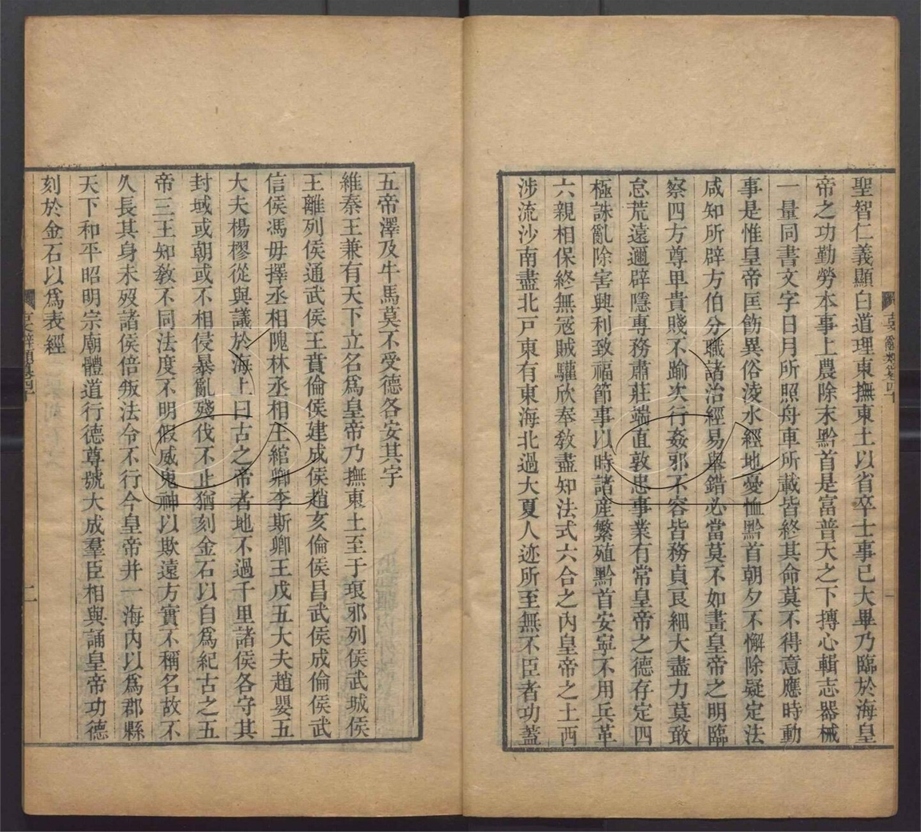 聖智仁義顯白道理東撫東土以省卒士事已大畢乃臨於海皇
帝之功勤勞本事上農除末黔首是富普天之下摶心輯志器械
一量同書文字日月所照舟車所載皆終其命莫不得意應時動
事是惟皇帝匡飭異俗淩水經地憂恤黔首朝夕不懈除疑定法
咸知所辟方伯分職諸治經易舉錯必當莫不如畫皇帝之明臨
察四方尊卑貴賤不踰次行姦邪不容皆務貞良細大盡力莫敢
怠荒遠邇辟隱專務肅莊端直敦忠事業有常皇帝之德存定四
極誅亂除害興利致福節事以時諸產繁殖黔首安寧不用兵革
六親相保終無寇賊驩欣奉敎盡知法式六合之內皇帝之土西
涉流沙南盡北戸東有東海北過大夏人迹所至無不臣者功蓋
五帝澤及牛馬莫不受德各安其字
維秦王兼有天下立名爲皇帝乃撫東土至于琅邪列侯武城侯
王離列侯通武侯王賁倫侯建成侯趙亥倫侯昌武侯成倫侯武
信侯馮毋擇丞相隗林丞相王綰卿李斯卿王戊五大夫趙嬰五
大夫楊樛從與議於海上曰古之帝者地不過千里諸侯各守其
封域或朝或不相侵暴亂殘伐不止猶刻金石以自爲紀古之五
帝三王知敎不同法度不明假威鬼神以欺遠方實不稱名故不
久長其身未歿諸侯倍叛法令不行今皇帝幷一海內以爲郡縣
天下和平昭明宗廟體道行德尊號大成羣臣相與誦皇帝功德
刻於金石以爲表經